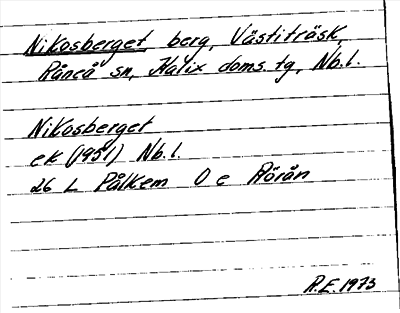 Nikosberget berg, Västiträsk,
Råneå sn, Kalix doms.tg, Nb.l.
Nikosberget
ek (1951) Nb.l.
26 L Pålkem 0 e Rörån
R.E. 1973